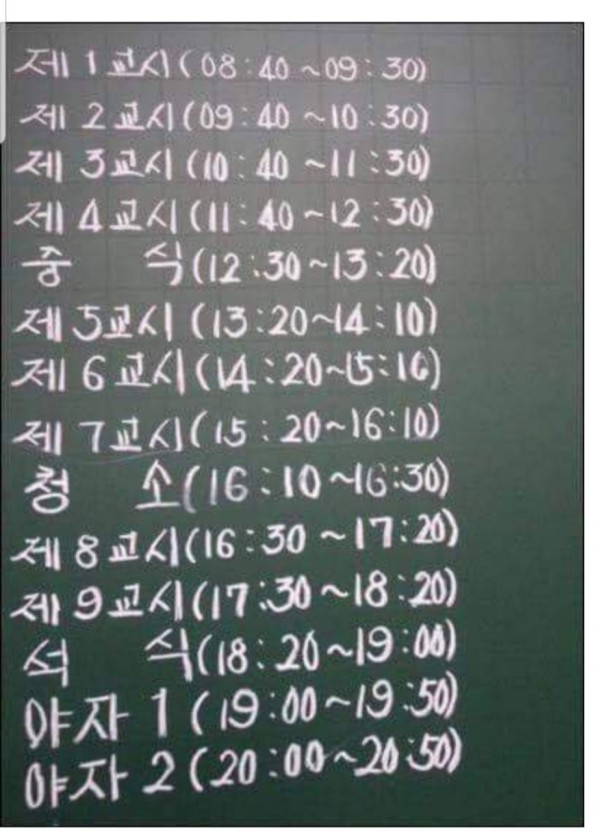 제 1 교시 (08:40 ~09:30)
제 2 교시 (09:40 ~10:30)
제 3교시 (10:40 ~11:30)
제 4 교시 (11:40~12:30)
중 식 (12:30~13:20)
제 5교시 (13:20~14:10)
제 6 교시 (14:20~15:10)
제 7교시 (15:20~16:10)
청 소 (16:10~16:30)
제 8 교시 (16:30 ~17:20)
제 9교시 (17:30~18:20)
석 식 (18:20~19:00)
야자 1 (19:00~19:50)
야자 2 (20:00~20:50)